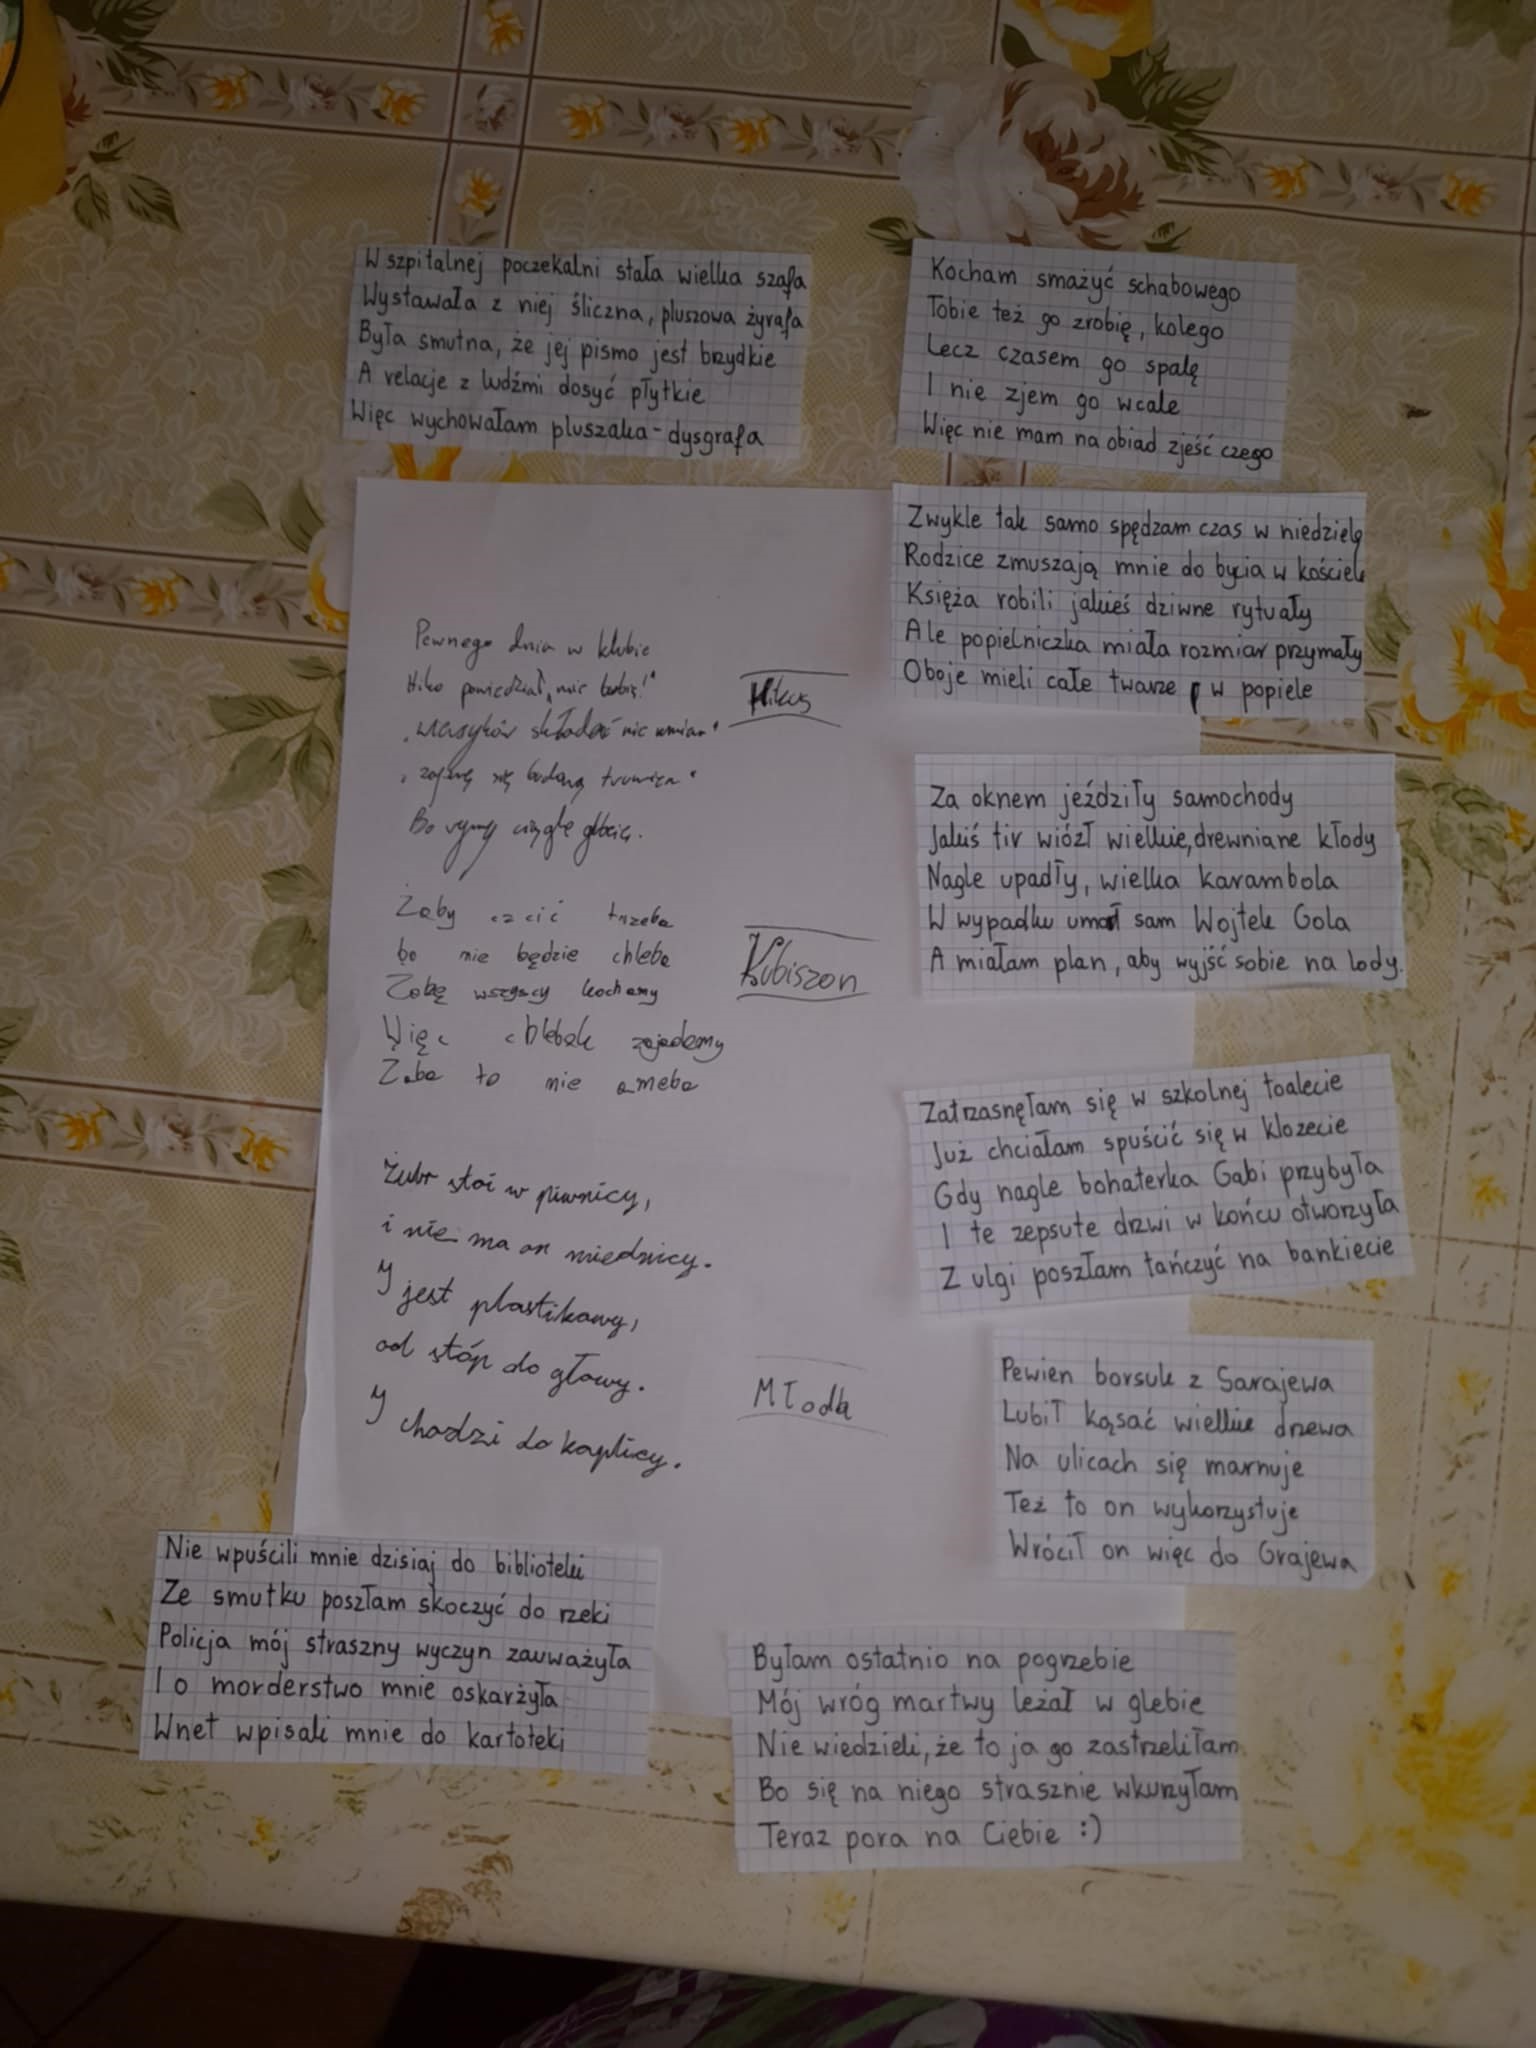 W szpitalnej poczekalni stała wielka szafa
Wystawała z niej śliczna, pluszowa żyrafa
Była smutna, że jej pismo jest brzydkie
A relacje z ludźmi dosyć płytkie
Więc wychowałam pluszaka-dysgrafa
Kocham smażyć schabowego
Tobie też go zrobię, kolego
Lecz czasem go spalę
I nie zjem go wcale
Więc nie mam na obiad zjeść czego
Zwykle tak samo spędzam czas w niedzielę
Rodzice zmuszają mnie do bycia w kościele
Księża robili jakieś dziwne rytuały
Ale popielniczka miała rozmiar przymały
Oboje mieli całe twarze w popiele
Pewnego dnia w klubie
Hiko powiedział "nic
składać nie umiem"
się trumien"
Bo rymy ciągle
Hikuś
Żaby czcić trzeba
bo nie będzie chleba
Żabę wszyscy kochamy
Więc chlebek zajadamy
Żaba to nie ameba
Kubiszon
Żubr stoi w piwnicy,
i nie ma on miednicy.
Y jest plastikowy,
od stóp do głowy.
Y chodzi do kaplicy.
Młoda
Za oknem jeździły samochody
Jakiś tir wiózł wielkie, drewniane kłody
Nagle upadły, wielka karambola
W wypadku umarł sam Wojtek Gola
A miałam plan, aby wyjść sobie na lody.
Zatrzasnęłam się w szkolnej toalecie
Już chciałam spuścić się w klozecie
Gdy nagle bohaterka Gabi przybyła
I te zepsute drzwi w końcu otworzyła
Z ulgi poszłam tańczyć na bankiecie
Pewien borsuk z Sarajewa
Lubił kąsać wielkie drzewa
Na ulicach się marnuje
Też to on wykorzystuje
Wrócił on więc do Grajewa
Nie wpuścili mnie dzisiaj do biblioteki
Ze smutku poszłam skoczyć do rzeki
Policja mój straszny wyczyn zauważyła
I o morderstwo mnie oskarżyła
Wnet wpisali mnie do kartoteki
Byłam ostatnio na pogrzebie
Mój wróg martwy leżał w glebie
Nie wiedzieli, że to ja go zastrzeliłam
Bo się na niego strasznie wkurzyłam
Teraz pora na Ciebie :)